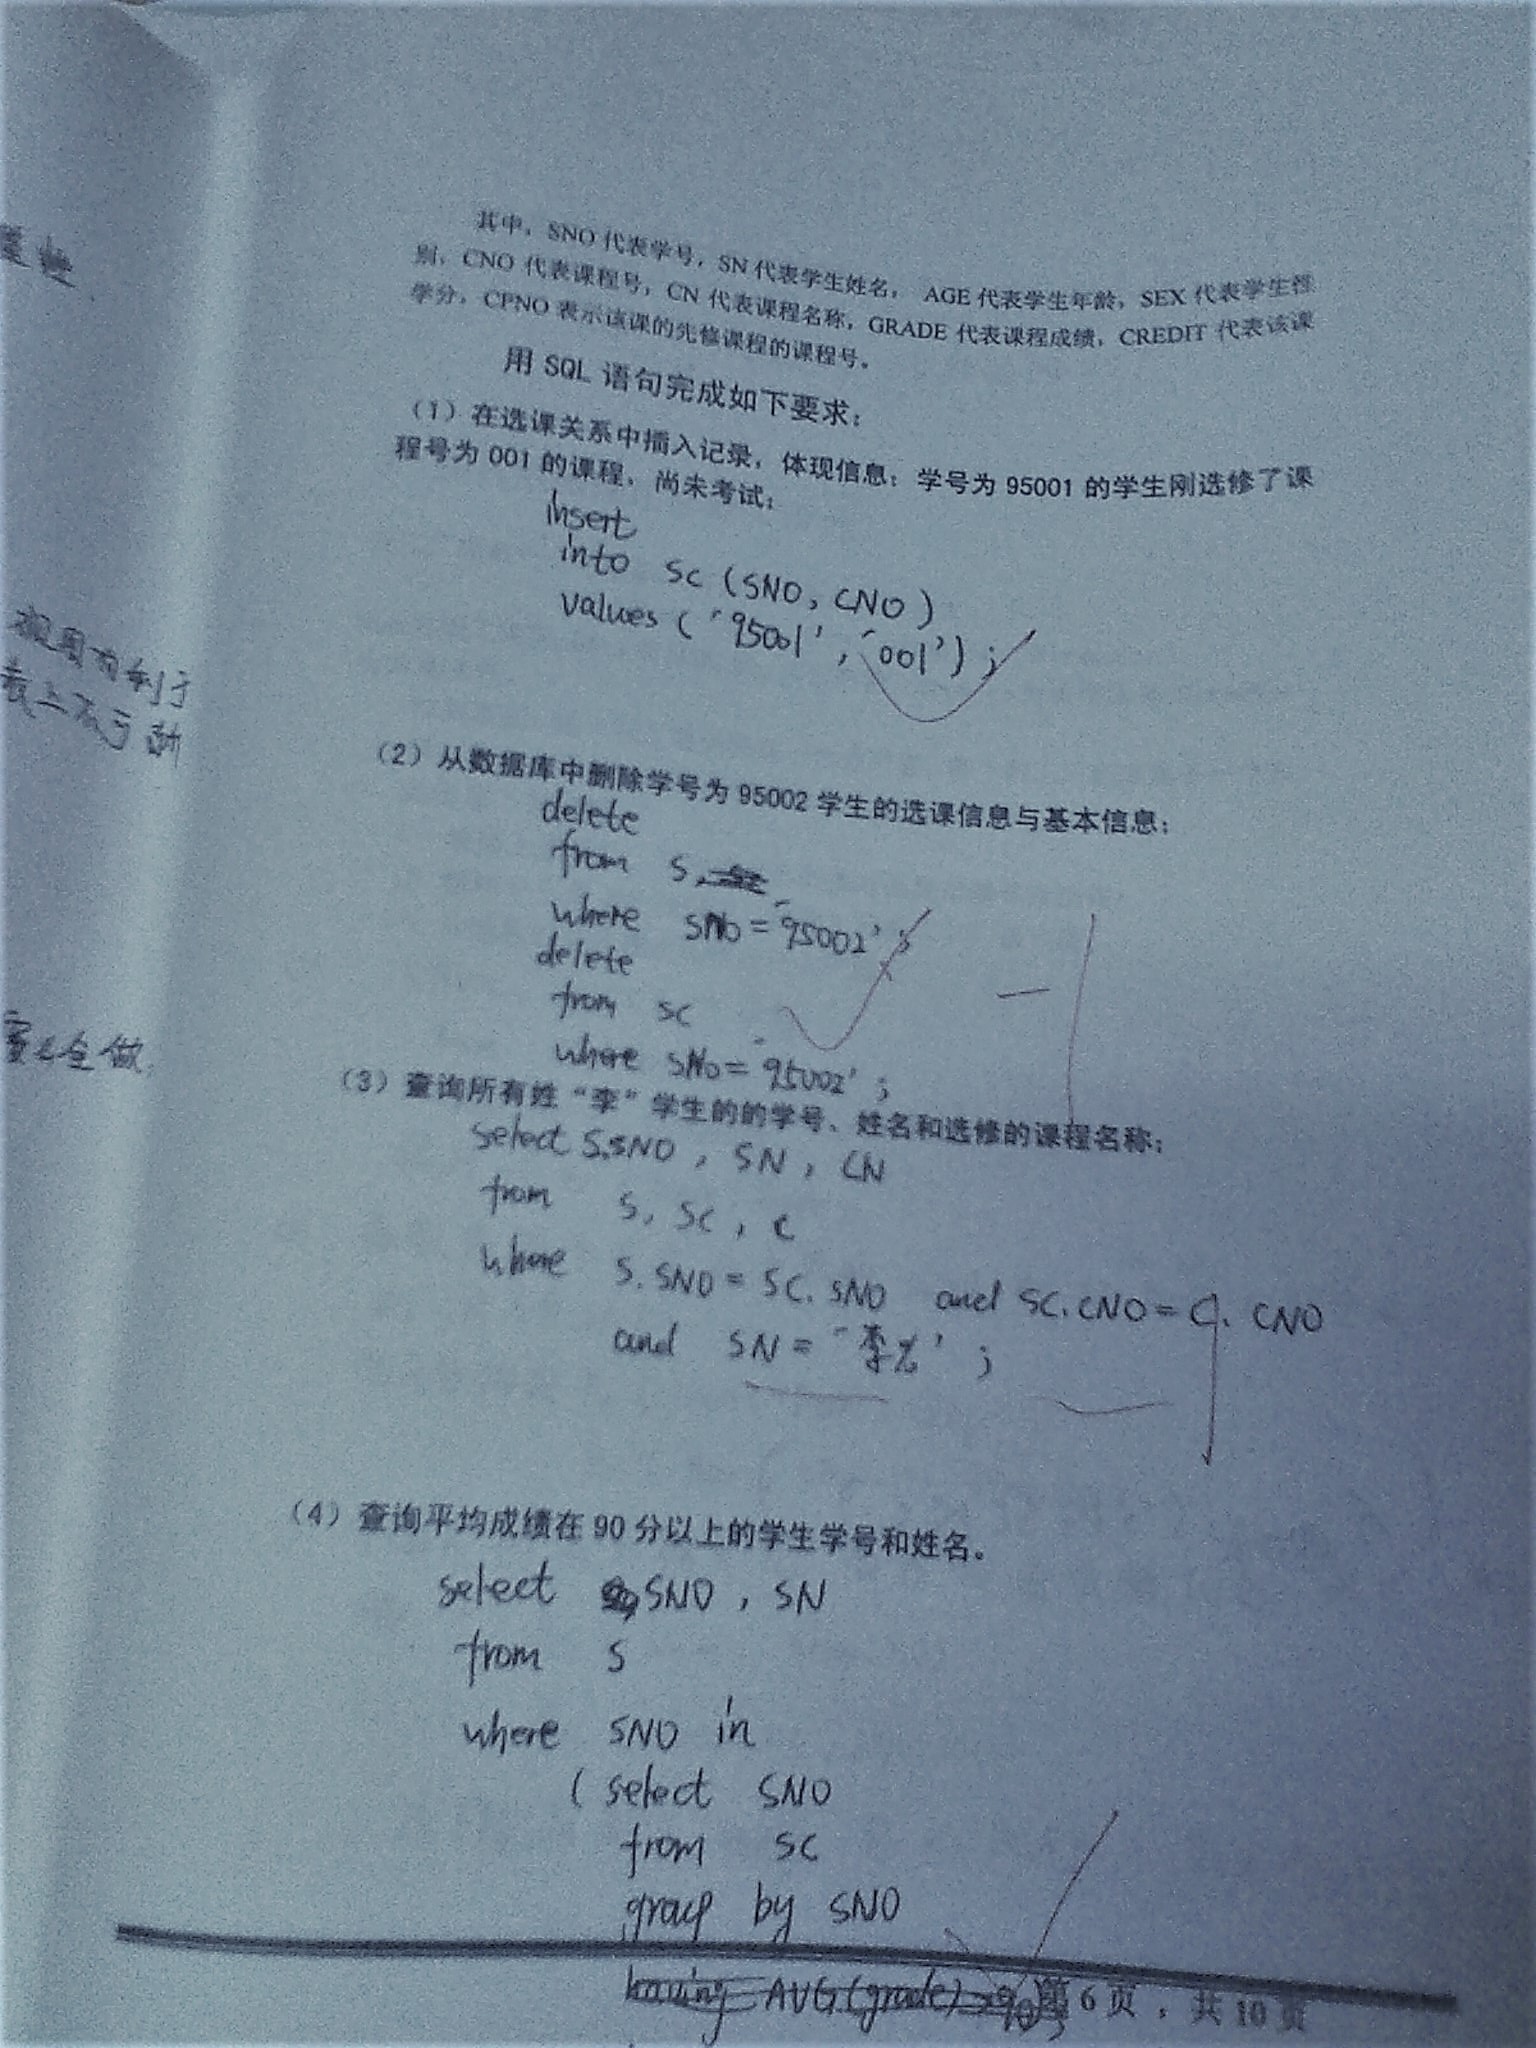 其中，SNO 代表学号，SN 代表学生姓名， AGE 代表学生年龄，SEX 代表学生性
别，CNO 代表课程号，CN 代表课程名称，GRADE 代表课程成绩，CREDIT 代表该课
学分，CPNO 表示该课的先修课程的课程号。
用 SQL 语句完成如下要求：
（1）在选课关系中插入记录，体现信息：学号为 95001 的学生刚选修了课
程号为 001 的课程，尚未考试；
insert
into sc (SNO, CNO)
values ('95001', '001');
（2）从数据库中删除学号为 95002 学生的选课信息与基本信息；
delete
from S,
where SNO = '95002';
delete
from sc
where SNO = '95002';
（3）查询所有姓“李”学生的的学号、姓名和选修的课程名称；
select S.SNO, SN, CN
from S, SC, C
where S.SNO = SC.SNO and SC.CNO = C.CNO
and SN = '李%';
（4）查询平均成绩在 90 分以上的学生学号和姓名。
select SNO, SN
from S
where SNO in
( select SNO
from SC
group by SNO
having AVG(grade)
第 6 页，共 10 页
全做